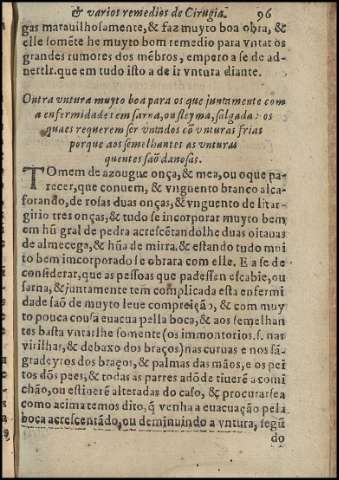 & varios remedios de Cirugia. 96
gas marauilhosamente, & faz muyto boa obra, &
elle somẽte he muyto bom remedio para vntar os
grandes tumores dos mẽbros, empero a se de ad-
uertir, que em tudo isto a de ir vntura diante.
Outra vntura muyto boa para os que juntamente com
a enfermidade tem sarna, ou fleyma, salgada: os
quaes requerem ser vntados cõ vnturas frias
porque aos semelhantes as vnturas
quentes saõ danosas.
TOmem de azougue onça, & mea, ou o que pa-
recer, que conuem, & vnguento branco alca-
forando, de rosas duas onças, & vnguento de litar-
girio tres onças, & tudo se incorporar muyto bem
em hũ gral de pedra acrescẽtandolhe duas oitauas
de almecega, & hũa de mirra, & estando tudo moi
to bem imcorporado se obrara com elle. E a se de
considerar, que as pessoas que padessem escabie, ou
sarna, & juntamente tem complicada esta enfermi
dade saõ de muyto leue compreiçaõ, & com muy
to pouca cousa euacua pella boca, & aos semelhan
tes basta vntarlhe somente (os immontorios. s. nas
virilhas, & debaxo dos braços) nas curuas e nos sã-
gradeyros dos braços, & palmas das mãos, e os pei
tos dos pees, & todas as partes adõde tiuerẽ a comi
chão, ou estiuerẽ alteradas do caso, & procurarsea
como acima temos dito, q̃ venha a euacuação pela
boca acrescentãdo, ou deminuindo a vntura, segũ
do